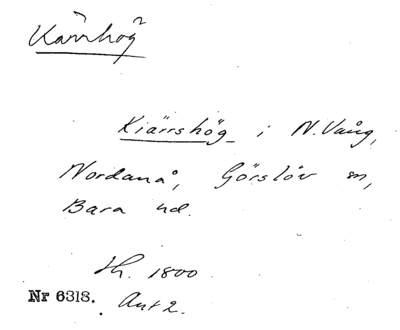 Kärrhög
Kiärrshög i N. Vång,
Nordanå, Görslöv sn,
Bara hd.
Sk. 1800
Nr 6318. Akt 2.